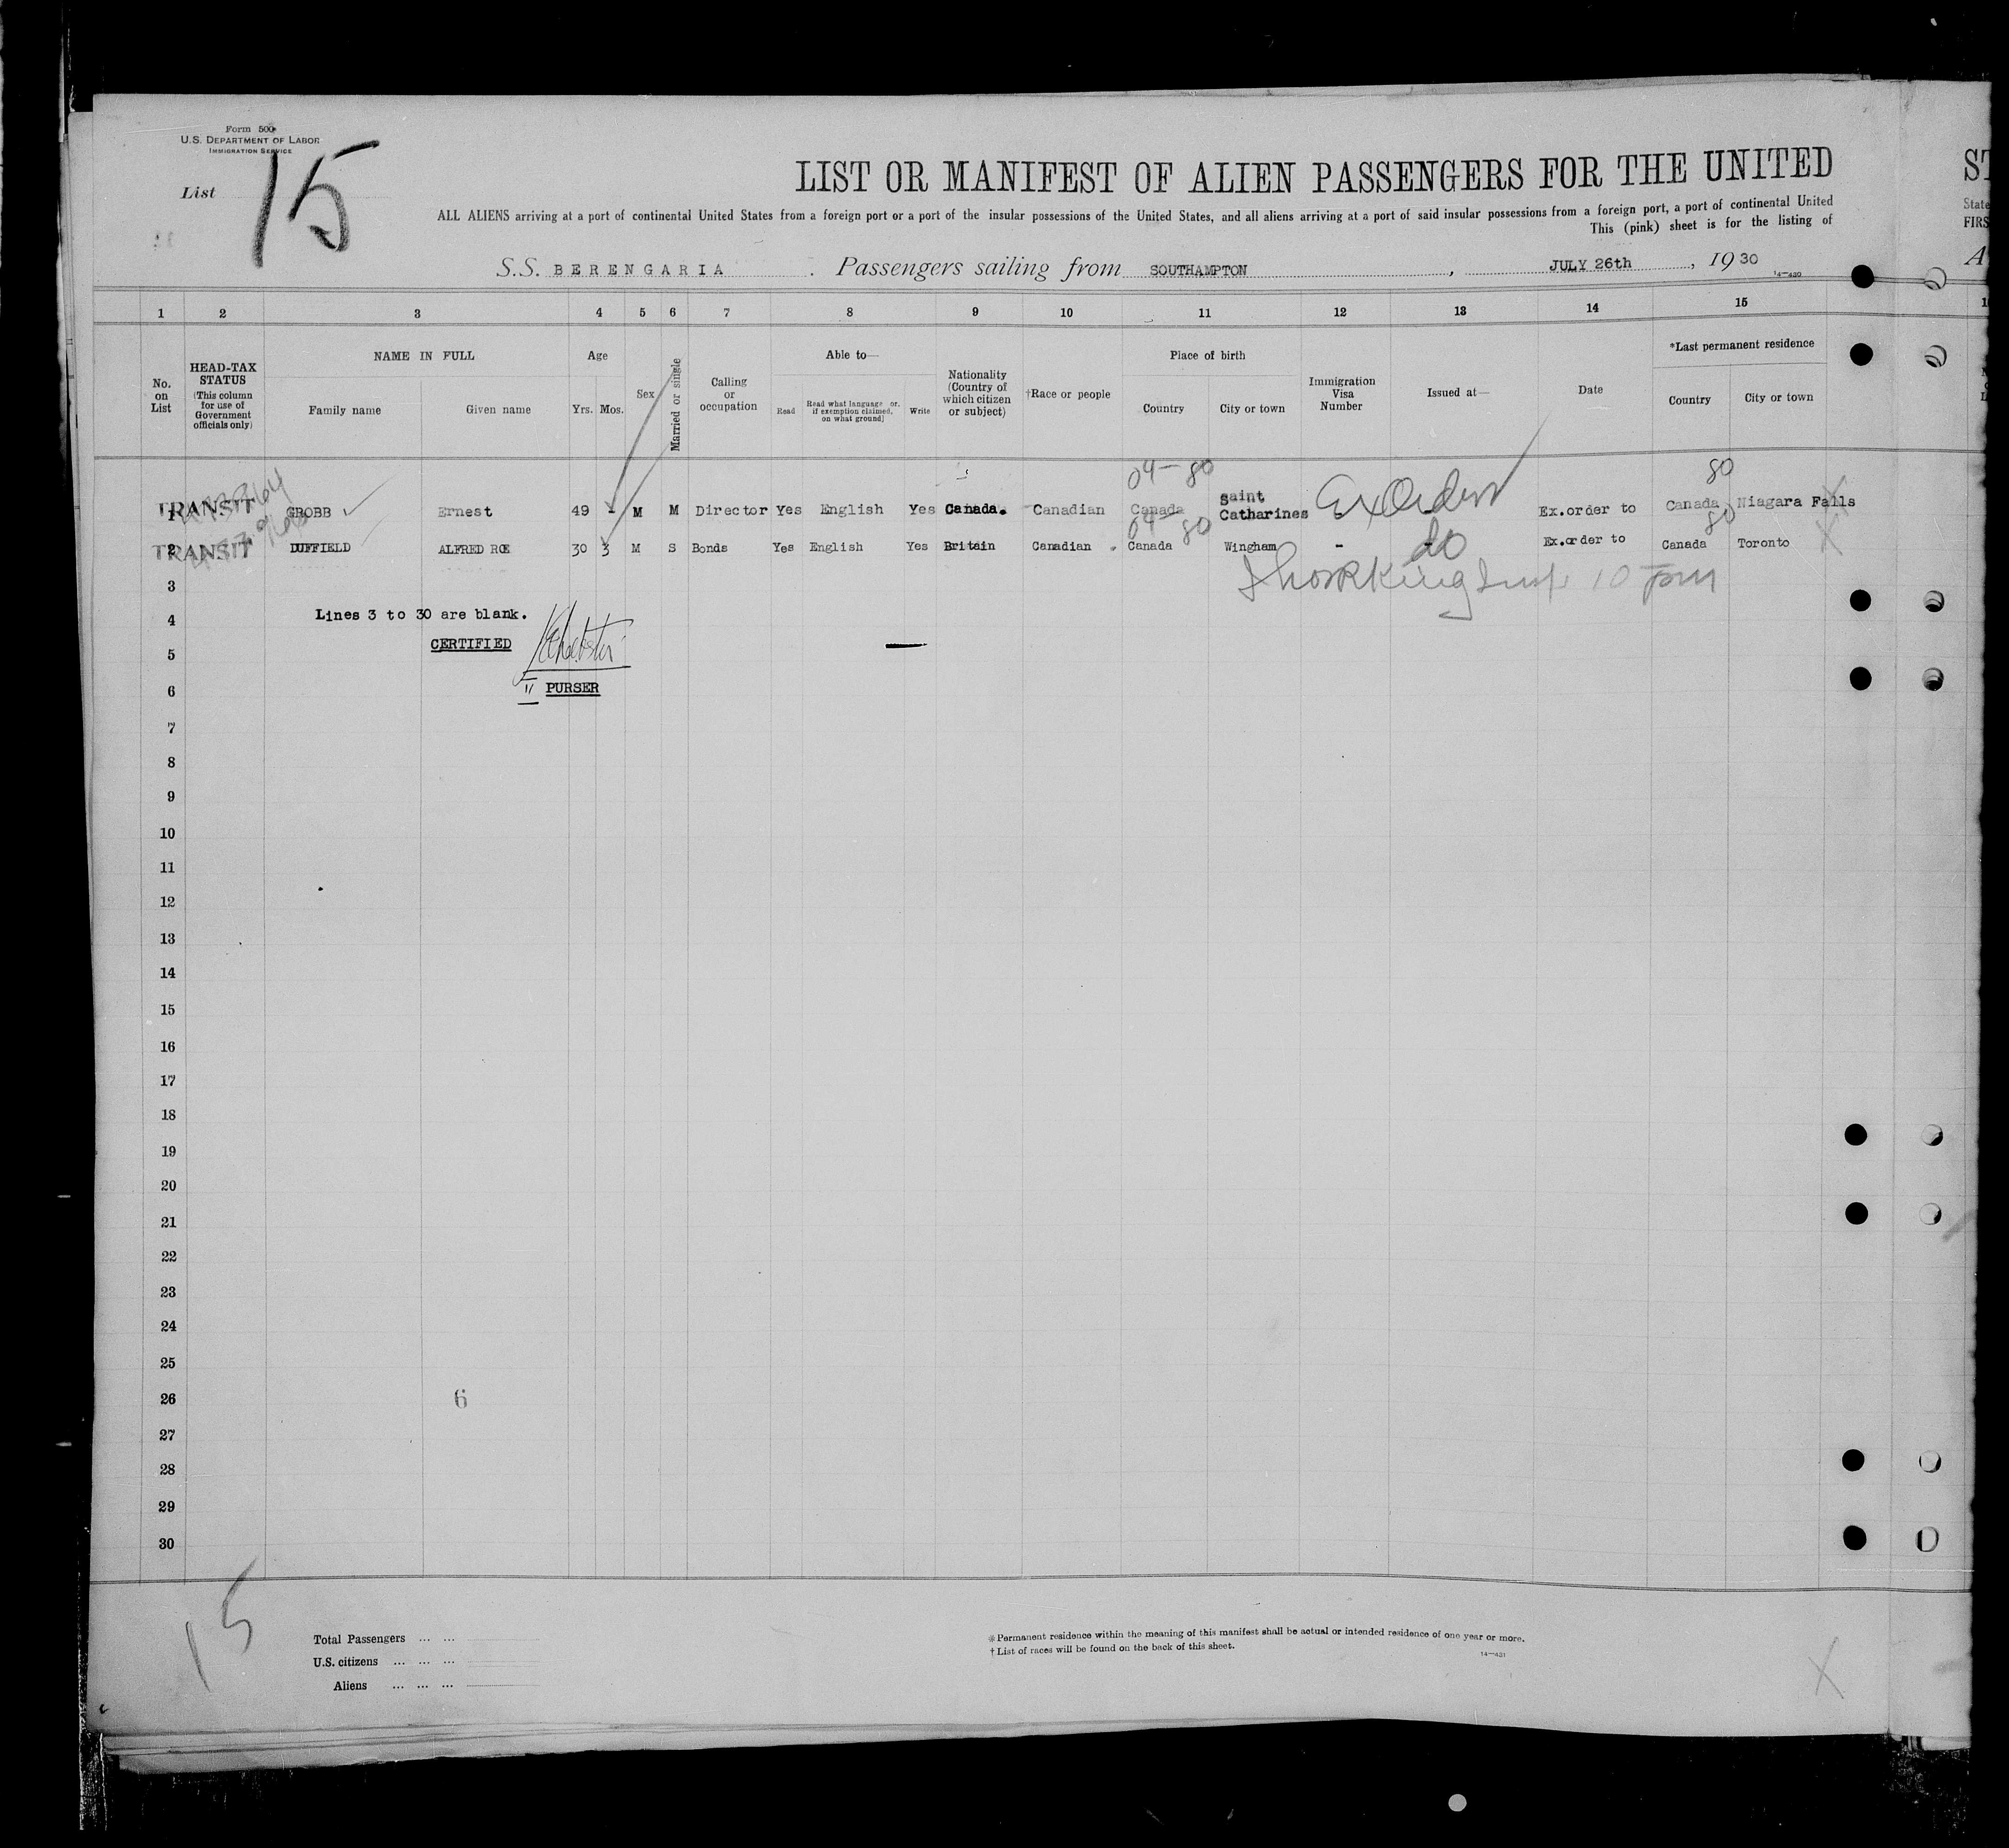 Form 500
U.S. DEPARTMENT OF LABOR
IMMIGRATION SERVICE
List 15
LIST OR MANIFEST OF ALIEN PASSENGERS FOR THE UNITED ST
ALL ALIENS arriving at a port of continental United States from a foreign port or a port of the insular possessions of the United States, and all aliens arriving at a port of said insular possessions from a foreign port, a port of continental United State
This (pink) sheet is for the listing of FIRS
S.S. BERENGARIA . Passengers sailing from SOUTHAMPTON , JULY 26th , 1930 A
14-430
1 2 3 4 5 6 7 8 9 10 11 12 13 14 15
No. on List
HEAD-TAX STATUS (This column for use of Government officials only)
NAME IN FULL
Family name Given name
Age
Yrs. Mos.
Sex
Married or single
Calling or occupation
Able to—
Read
Read what language or, if exemption claimed, on what ground]
Write
Nationality (Country of which citizen or subject)
†Race or people
Place of birth
Country City or town
Immigration Visa Number
Issued at—
Date
*Last permanent residence
Country City or town
04-80 80
1 TRANSIT GROBB Ernest 49 - M M Director Yes English Yes Canada. Canadian Canada Saint Catharines Ex Orders Ex.order to Canada Niagara Falls
04- 80 80
2 TRANSIT DUFFIELD ALFRED ROE 30 3 M S Bonds Yes English Yes Britain Canadian Canada Wingham - do Ex.order to Canada Toronto
3
10 pm
Lines 3 to 30 are blank.
4
CERTIFIED
5
II PURSER
6
7
8
9
10
11
12
13
14
15
16
17
18
19
20
21
22
23
24
25
26 6
27
28
29
30
15
Total Passengers ... ...
U.S. citizens ... ... ...
Aliens ... ... ...
*Permanent residence within the meaning of this manifest shall be actual or intended residence of one year or more.
†List of races will be found on the back of this sheet.
14-431